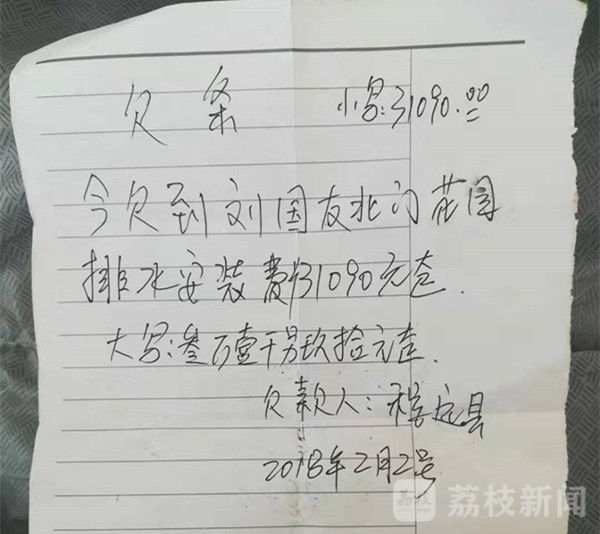 欠条 小写:31090.00
今欠到刘国友北门花园
排水安装费¥31090元走.
大写:叁万壹千另玖拾元走.
欠款人:程定县
2018年2月2号
荔枝新闻